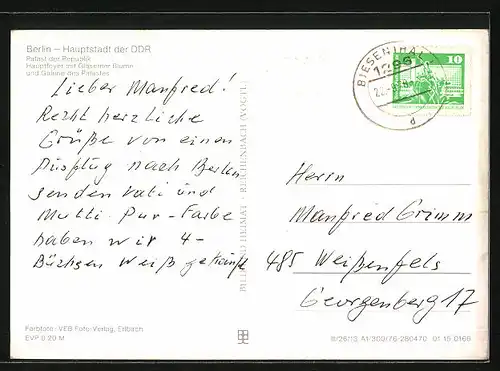 Berlin – Hauptstadt der DDR
Palast der Republik
Hauptfoyer mit Gläserner Blume
und Galerie des Palastes
Lieber Manfred!
Recht herzliche
Grüße von einen
Ausflug nach Berlin
senden Vati und
Mutti. Pur-Farbe
haben wir 4-
Büchsen Weiß gekauft
BIESENTHAL
10
a
Herrn
Manfred Grimm
485 Weißenfels
Georgenberg 17
BILD UND HEIMAT REICHENBACH (VOGTL)
Farbfoto: VEB Foto-Verlag, Erlbach
EVP 0 20 M
III/26/13 A1/300/76 280470 01 15 0166